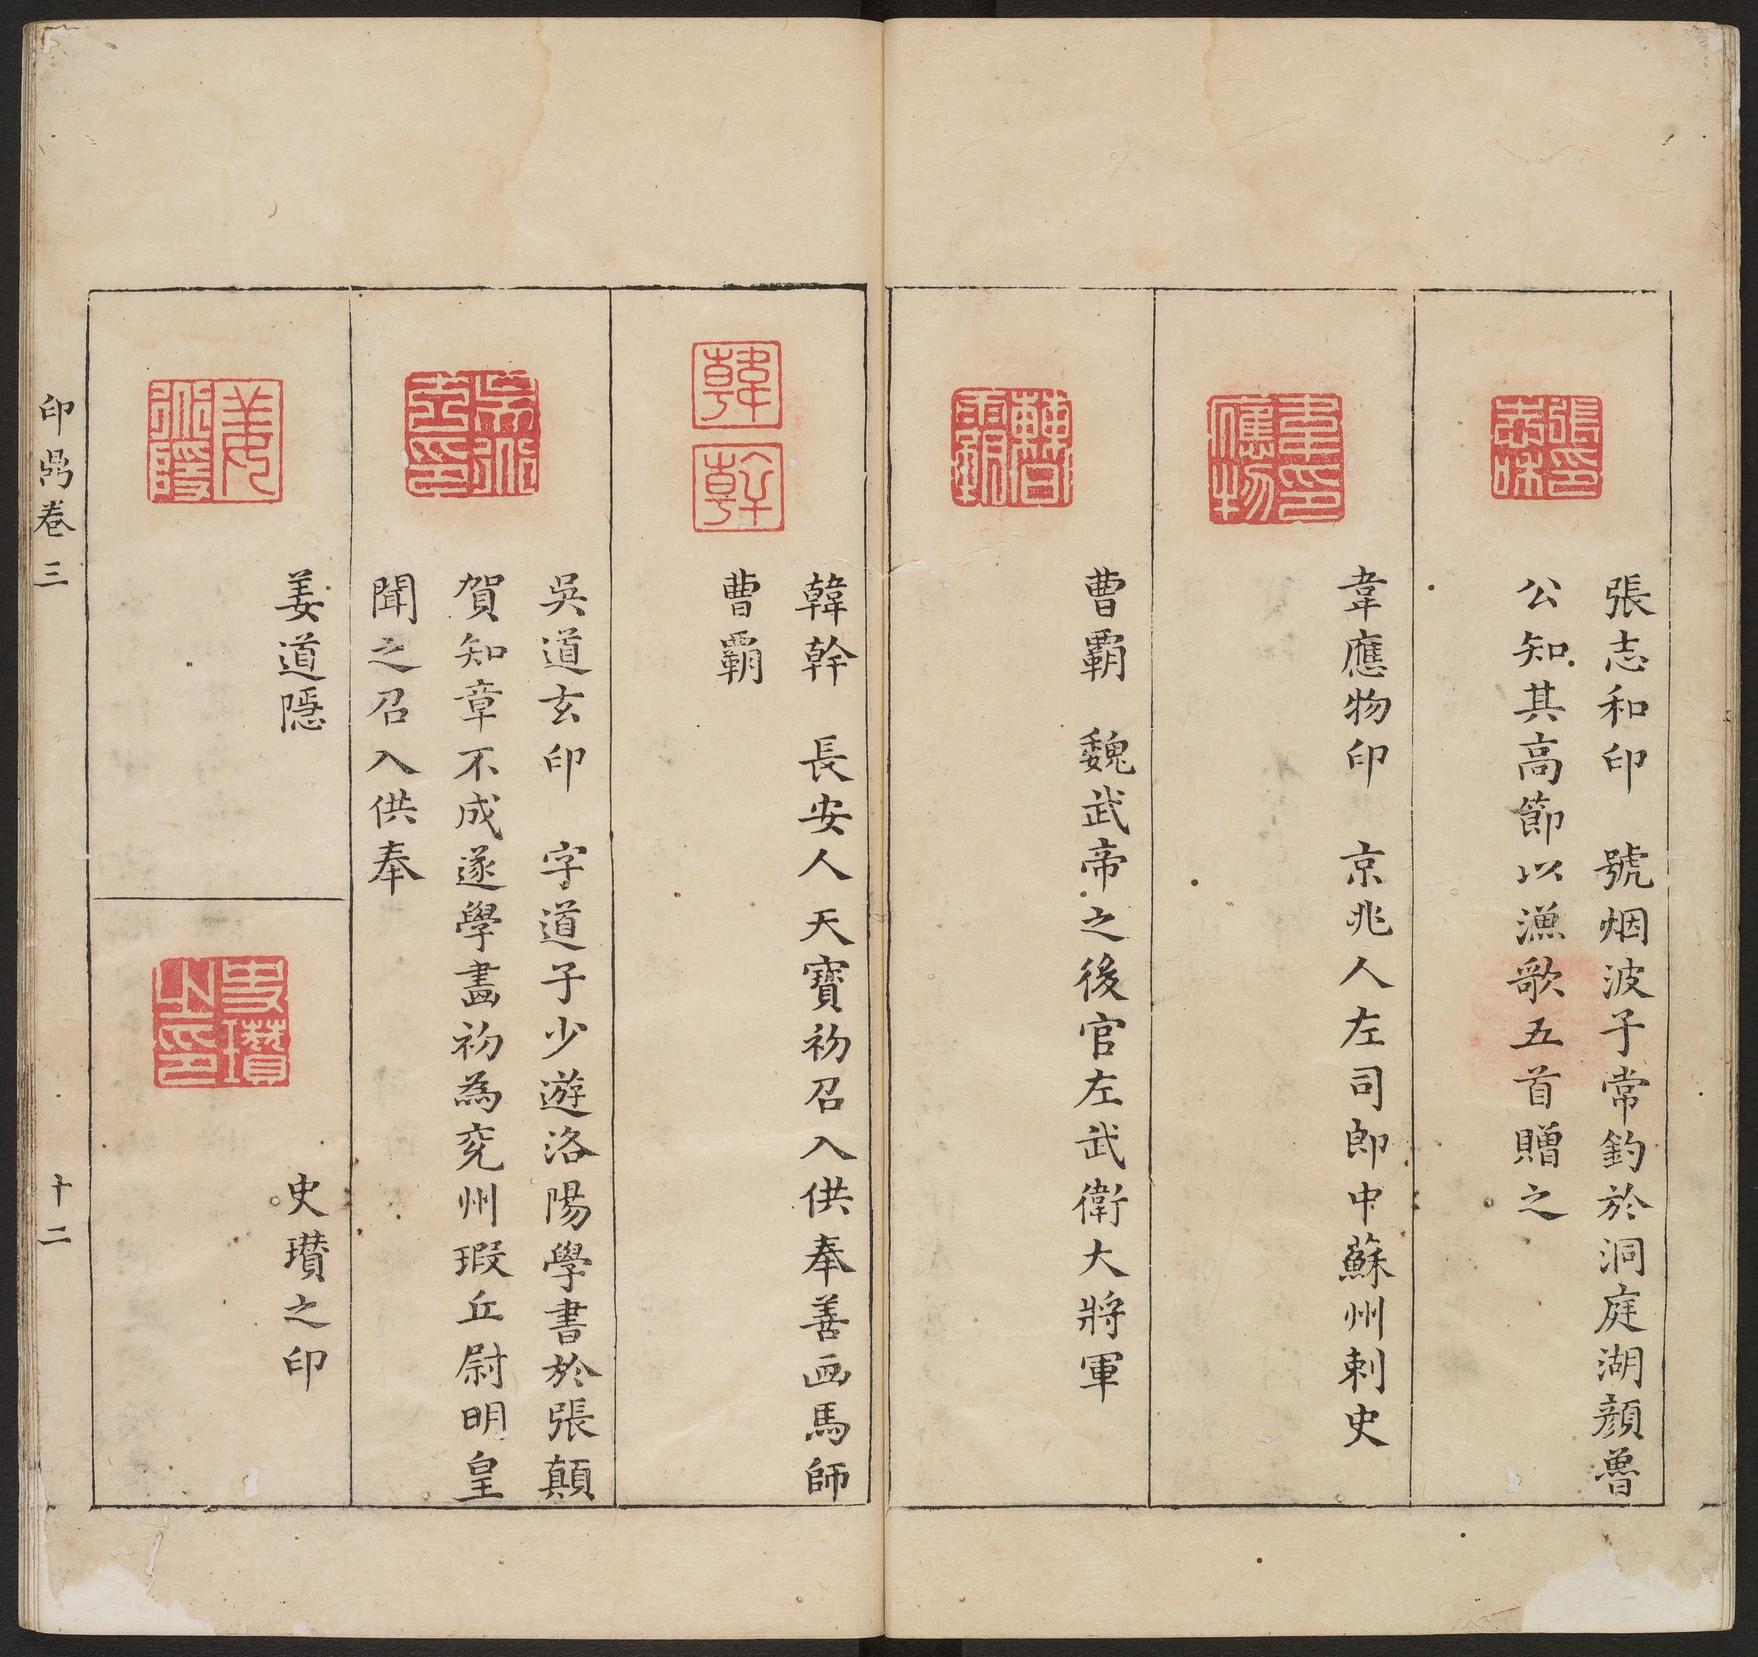 張志和印
張志和印　號烟波子常釣於洞庭湖顔魯
公知其高節以漁歌五首贈之
韋應物印
韋應物印　京兆人左司郎中蘇州刺史
曹霸
曹霸　魏武帝之後官左武衛大將軍
韓
幹
韓幹　長安人天寶初召入供奉善画馬師
曹霸
吳道玄印
吳道玄印　字道子少遊洛陽學書於張顛
賀知章不成遂學畫初為兖州瑕丘尉明皇
聞之召入供奉
姜道隱
姜道隱
史瓚之印
史瓚之印
印鼎卷三
十二